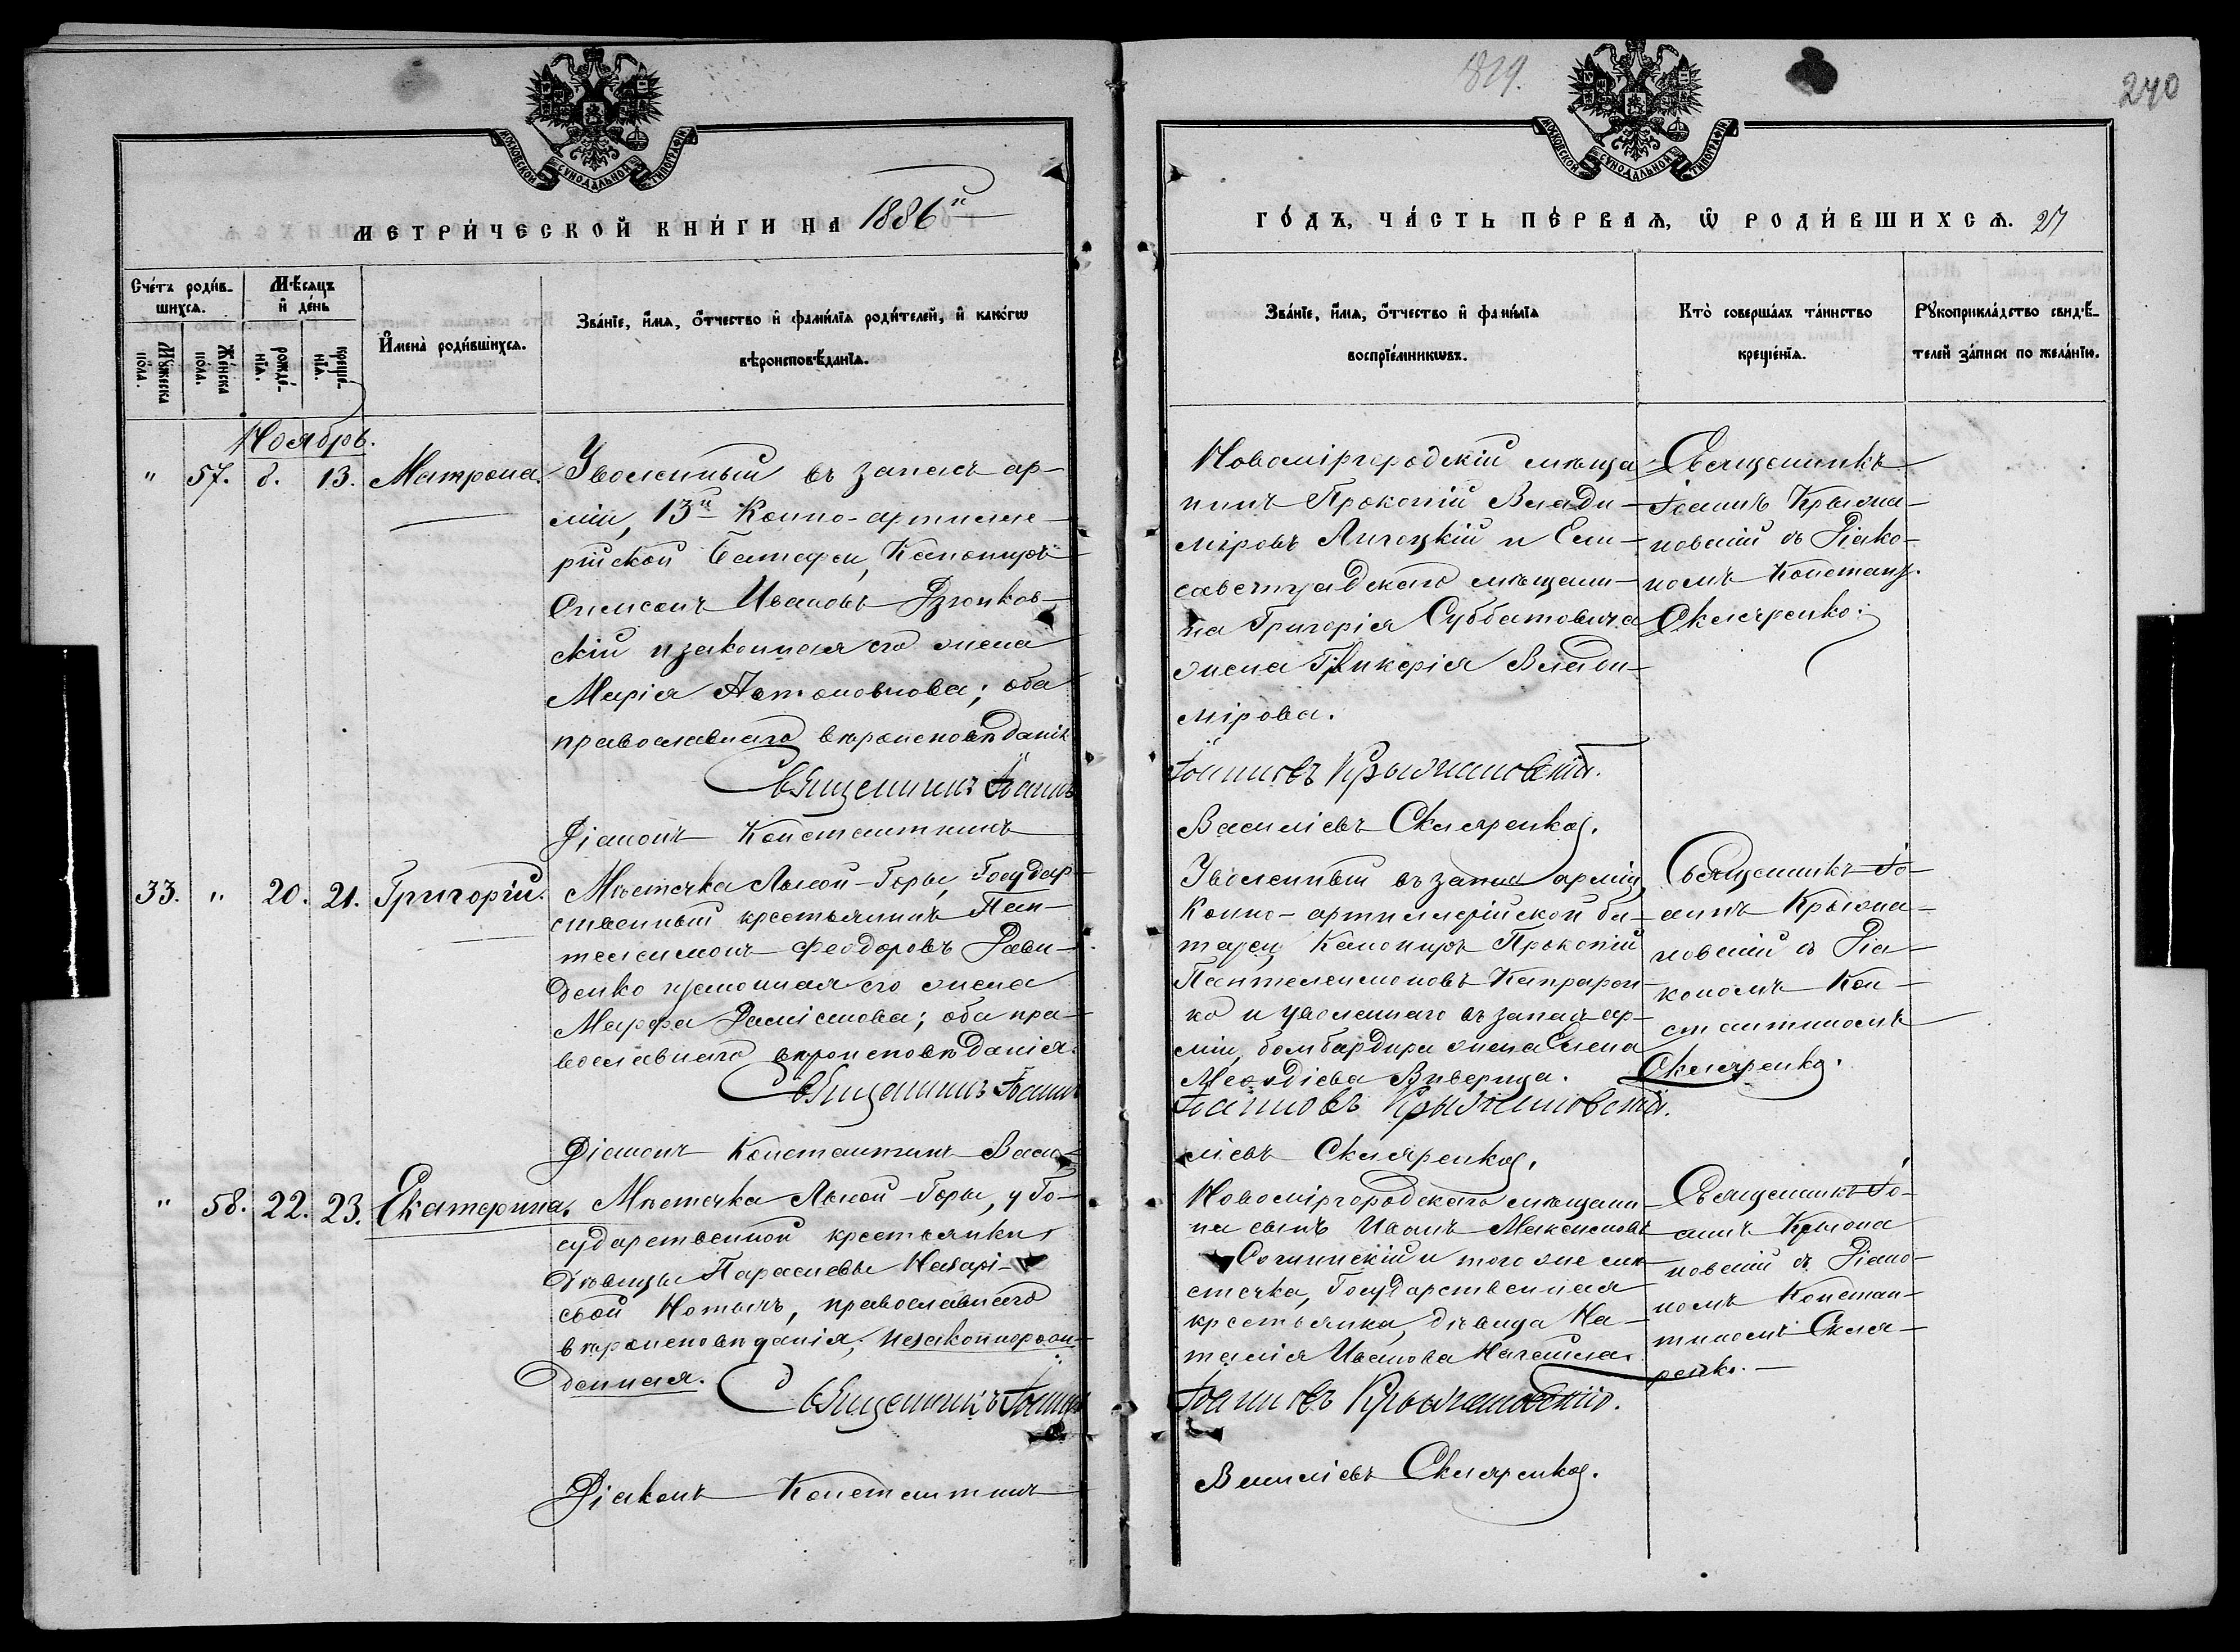 829.
240
МОСКОВСКОЙ СѴНОДАЛЬНОЙ ТИПОГРАФІИ
МОСКОВСКОЙ СѴНОДАЛЬНОЙ ТИПОГРАФІИ
МЕТРИ́ЧЕСКОЙ КНИ́ГИ НА 1886й
ГО́ДЪ, ЧА́СТЬ ПЕ́РВАѦ, Ѡ҆ РОДИ́ВШИХСѦ. 27
Сче́тъ роди́в-
шихсѧ.
Мꙋ́жеска по́ла.
Же́нска по́ла.
Мѣ́сѧцъ
и҆ де́нь
рожде́-
нїѧ.
креще́-
нїѧ.
И҆мена̀ роди́вшихсѧ.
Зва́нїе, и҆́мѧ, ѻ҆́тчество и҆ фами́лїѧ роди́телей, и҆ како́гѡ
вѣроисповѣ́данїѧ.
Зва́нїе, и҆́мѧ, ѻ҆́тчество и҆ фами́лїѧ
воспрїе́мникѡвъ.
Кто̀ соверша́лъ та́инство
креще́нїѧ.
Рꙋкоприкла́дство свидѣ́-
телей за́писи по жела́нїю.
Ноябрь.
" 57. 8. 13. Матрона.
Уволенный въ запасъ ар-
міи, 13й Конно-артилле-
рійской батареи, Канониръ
Иванов Дзюнков-
скій и законная его жена
Марія Антоновнова; оба
православнаго вѣроисповѣданія
Священникъ Іоаннъ
Діаконъ Константинъ
Новоміргородскій мѣща-
нинъ Прокопій Влади-
міровъ и Ели-
саветградскаго мѣщани-
на Григорія Субботовича
жена Гликерія Влади-
мірова.
Іоанновъ Крыжановскій.
Василіевъ Скляренко.
Священникъ
Іоаннъ Крыжа-
новскій съ Діако-
номъ Констант.
Скляренко.
33. " 20. 21. Григорій.
Мѣстечка Лысой-Горы, Государ-
ственный крестьянинъ Пан-
телеимонъ Феодоровъ Дави-
денко и законная его жена
Марфа Даміанова; оба пра-
вославнаго вѣроисповѣданія.
Священникъ Іоаннъ
Діаконъ Константинъ Васи-
Уволенный въ запасъ арміи,
Конно-артиллерійской ба-
тареи, Канониръ Прокопій
Пантелеимоновъ
ко и уволеннаго въ запасъ ар-
міи, бомбардира жена Елена
Меѳодіева Виверица.
Іоанновъ Крыжановскій.
ліевъ Скляренко.
Священникъ Іо-
аннъ Крыжа-
новскій съ Діа-
кономъ Кон-
стантиномъ
Скляренко.
" 58. 22. 23. Екатерина.
Мѣстечка Лысой-Горы, у Го-
сударственной крестьянки,
дѣвицы Параскевы Назарі-
евой православнаго
вѣроисповѣданія, незаконнорож-
денная.
Священникъ Іоаннъ
Діаконъ Константинъ
Новоміргородскаго мѣщани-
на сынъ Иванъ Максимовъ
и того же мѣ-
стечка, Государственная
крестьянка, дѣвица На-
талія Иванова
Іоанновъ Крыжановскій.
Василіевъ Скляренко.
Священникъ Іо-
аннъ Крыжа
новскій съ Діако-
номъ Констан-
тиномъ Скля-
ренко.